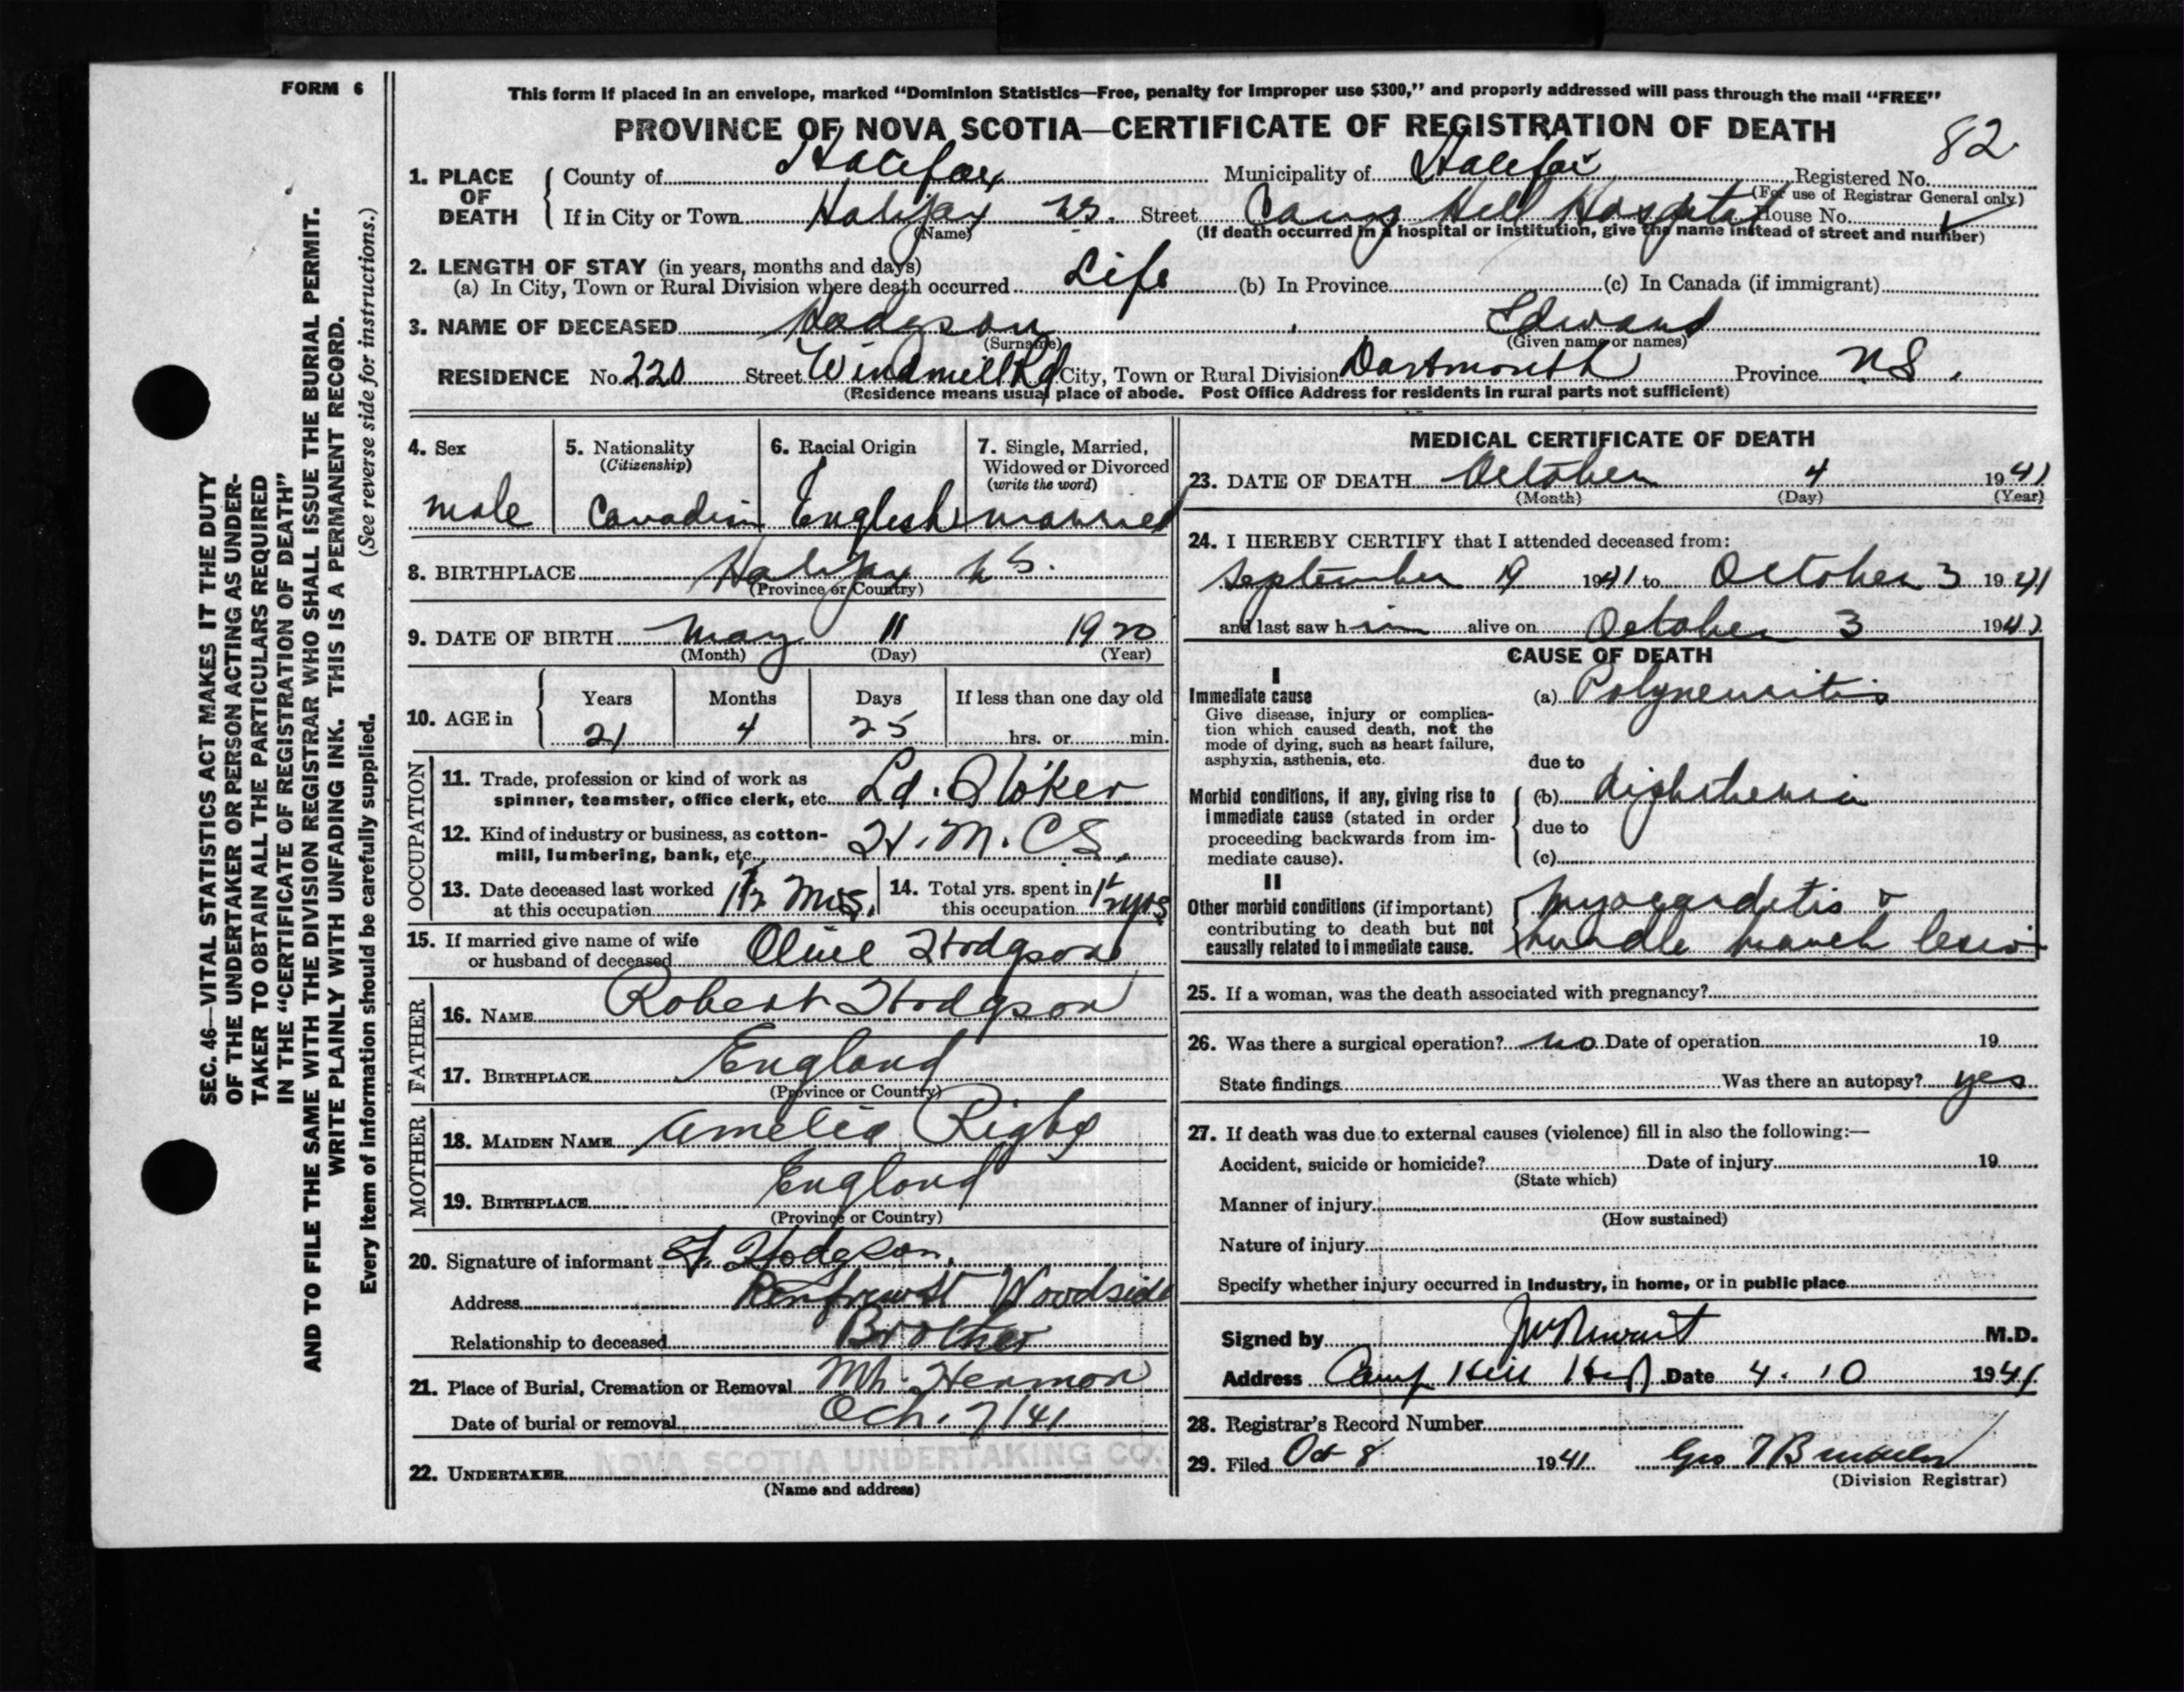 FORM 6
This form if placed in an envelope, marked “Dominion Statistics—Free, penalty for improper use $300,” and properly addressed will pass through the mail “FREE”
PROVINCE OF NOVA SCOTIA—CERTIFICATE OF REGISTRATION OF DEATH
82
1. PLACE OF DEATH
County of Halifax Municipality of Halifax Registered No.
(For use of Registrar General only)
If in City or Town Halifax NS. Street Camp Hill Hospital House No.
(Name) (If death occurred in a hospital or institution, give the name instead of street and number)
2. LENGTH OF STAY (in years, months and days)
(a) In City, Town or Rural Division where death occurred Life (b) In Province (c) In Canada (if immigrant)
3. NAME OF DECEASED Hodgson, Edward
(Surname) (Given name or names)
RESIDENCE No. 220 Street Windmill Rd City, Town or Rural Division Dartmouth Province NS.
(Residence means usual place of abode. Post Office Address for residents in rural parts not sufficient)
4. Sex
male
5. Nationality
(Citizenship)
Canadian
6. Racial Origin
English
7. Single, Married,
Widowed or Divorced
(write the word)
married
8. BIRTHPLACE Halifax NS.
(Province or Country)
9. DATE OF BIRTH May 11 1920
(Month) (Day) (Year)
10. AGE in
Years Months Days If less than one day old
21 4 25 hrs. or min.
OCCUPATION
11. Trade, profession or kind of work as
spinner, teamster, office clerk, etc. Ld. Stoker
12. Kind of industry or business, as cotton-
mill, lumbering, bank, etc. H.M.C.S.
13. Date deceased last worked
at this occupation 1½ Mos.
14. Total yrs. spent in
this occupation 1½ yrs
15. If married give name of wife
or husband of deceased Olive Hodgson
FATHER
16. NAME Robert Hodgson
17. BIRTHPLACE England
(Province or Country)
MOTHER
18. MAIDEN NAME Amelia Rigby
19. BIRTHPLACE England
(Province or Country)
20. Signature of informant F. Hodgson,
Address Renfrew St Woodside
Relationship to deceased Brother
21. Place of Burial, Cremation or Removal Mt. Hermon
Date of burial or removal Oct. 7/41
22. UNDERTAKER NOVA SCOTIA UNDERTAKING CO.
(Name and address)
MEDICAL CERTIFICATE OF DEATH
23. DATE OF DEATH October 4 1941
(Month) (Day) (Year)
24. I HEREBY CERTIFY that I attended deceased from:
September 19 1941 to October 3 1941
and last saw him alive on October 3 1941
CAUSE OF DEATH
I
Immediate cause
Give disease, injury or complica-
tion which caused death, not the
mode of dying, such as heart failure,
asphyxia, asthenia, etc.
(a) Polyneuritis
due to
Morbid conditions, if any, giving rise to
immediate cause (stated in order
proceeding backwards from im-
mediate cause).
(b) diphtheria
due to
(c)
II
Other morbid conditions (if important)
contributing to death but not
causally related to immediate cause.
myocarditis &
bundle branch lesion
25. If a woman, was the death associated with pregnancy?
26. Was there a surgical operation? no Date of operation 19
State findings Was there an autopsy? yes
27. If death was due to external causes (violence) fill in also the following:—
Accident, suicide or homicide? Date of injury 19
(State which)
Manner of injury
(How sustained)
Nature of injury
Specify whether injury occurred in industry, in home, or in public place
Signed by M.D.
Address Camp Hill Hosp. Date 4. 10 1941
28. Registrar's Record Number
29. Filed Oct 8 1941 Geo
(Division Registrar)
SEC. 46—VITAL STATISTICS ACT MAKES IT THE DUTY
OF THE UNDERTAKER OR PERSON ACTING AS UNDER-
TAKER TO OBTAIN ALL THE PARTICULARS REQUIRED
IN THE “CERTIFICATE OF REGISTRATION OF DEATH”
AND TO FILE THE SAME WITH THE DIVISION REGISTRAR WHO SHALL ISSUE THE BURIAL PERMIT.
WRITE PLAINLY WITH UNFADING INK. THIS IS A PERMANENT RECORD.
Every item of information should be carefully supplied. (See reverse side for instructions.)